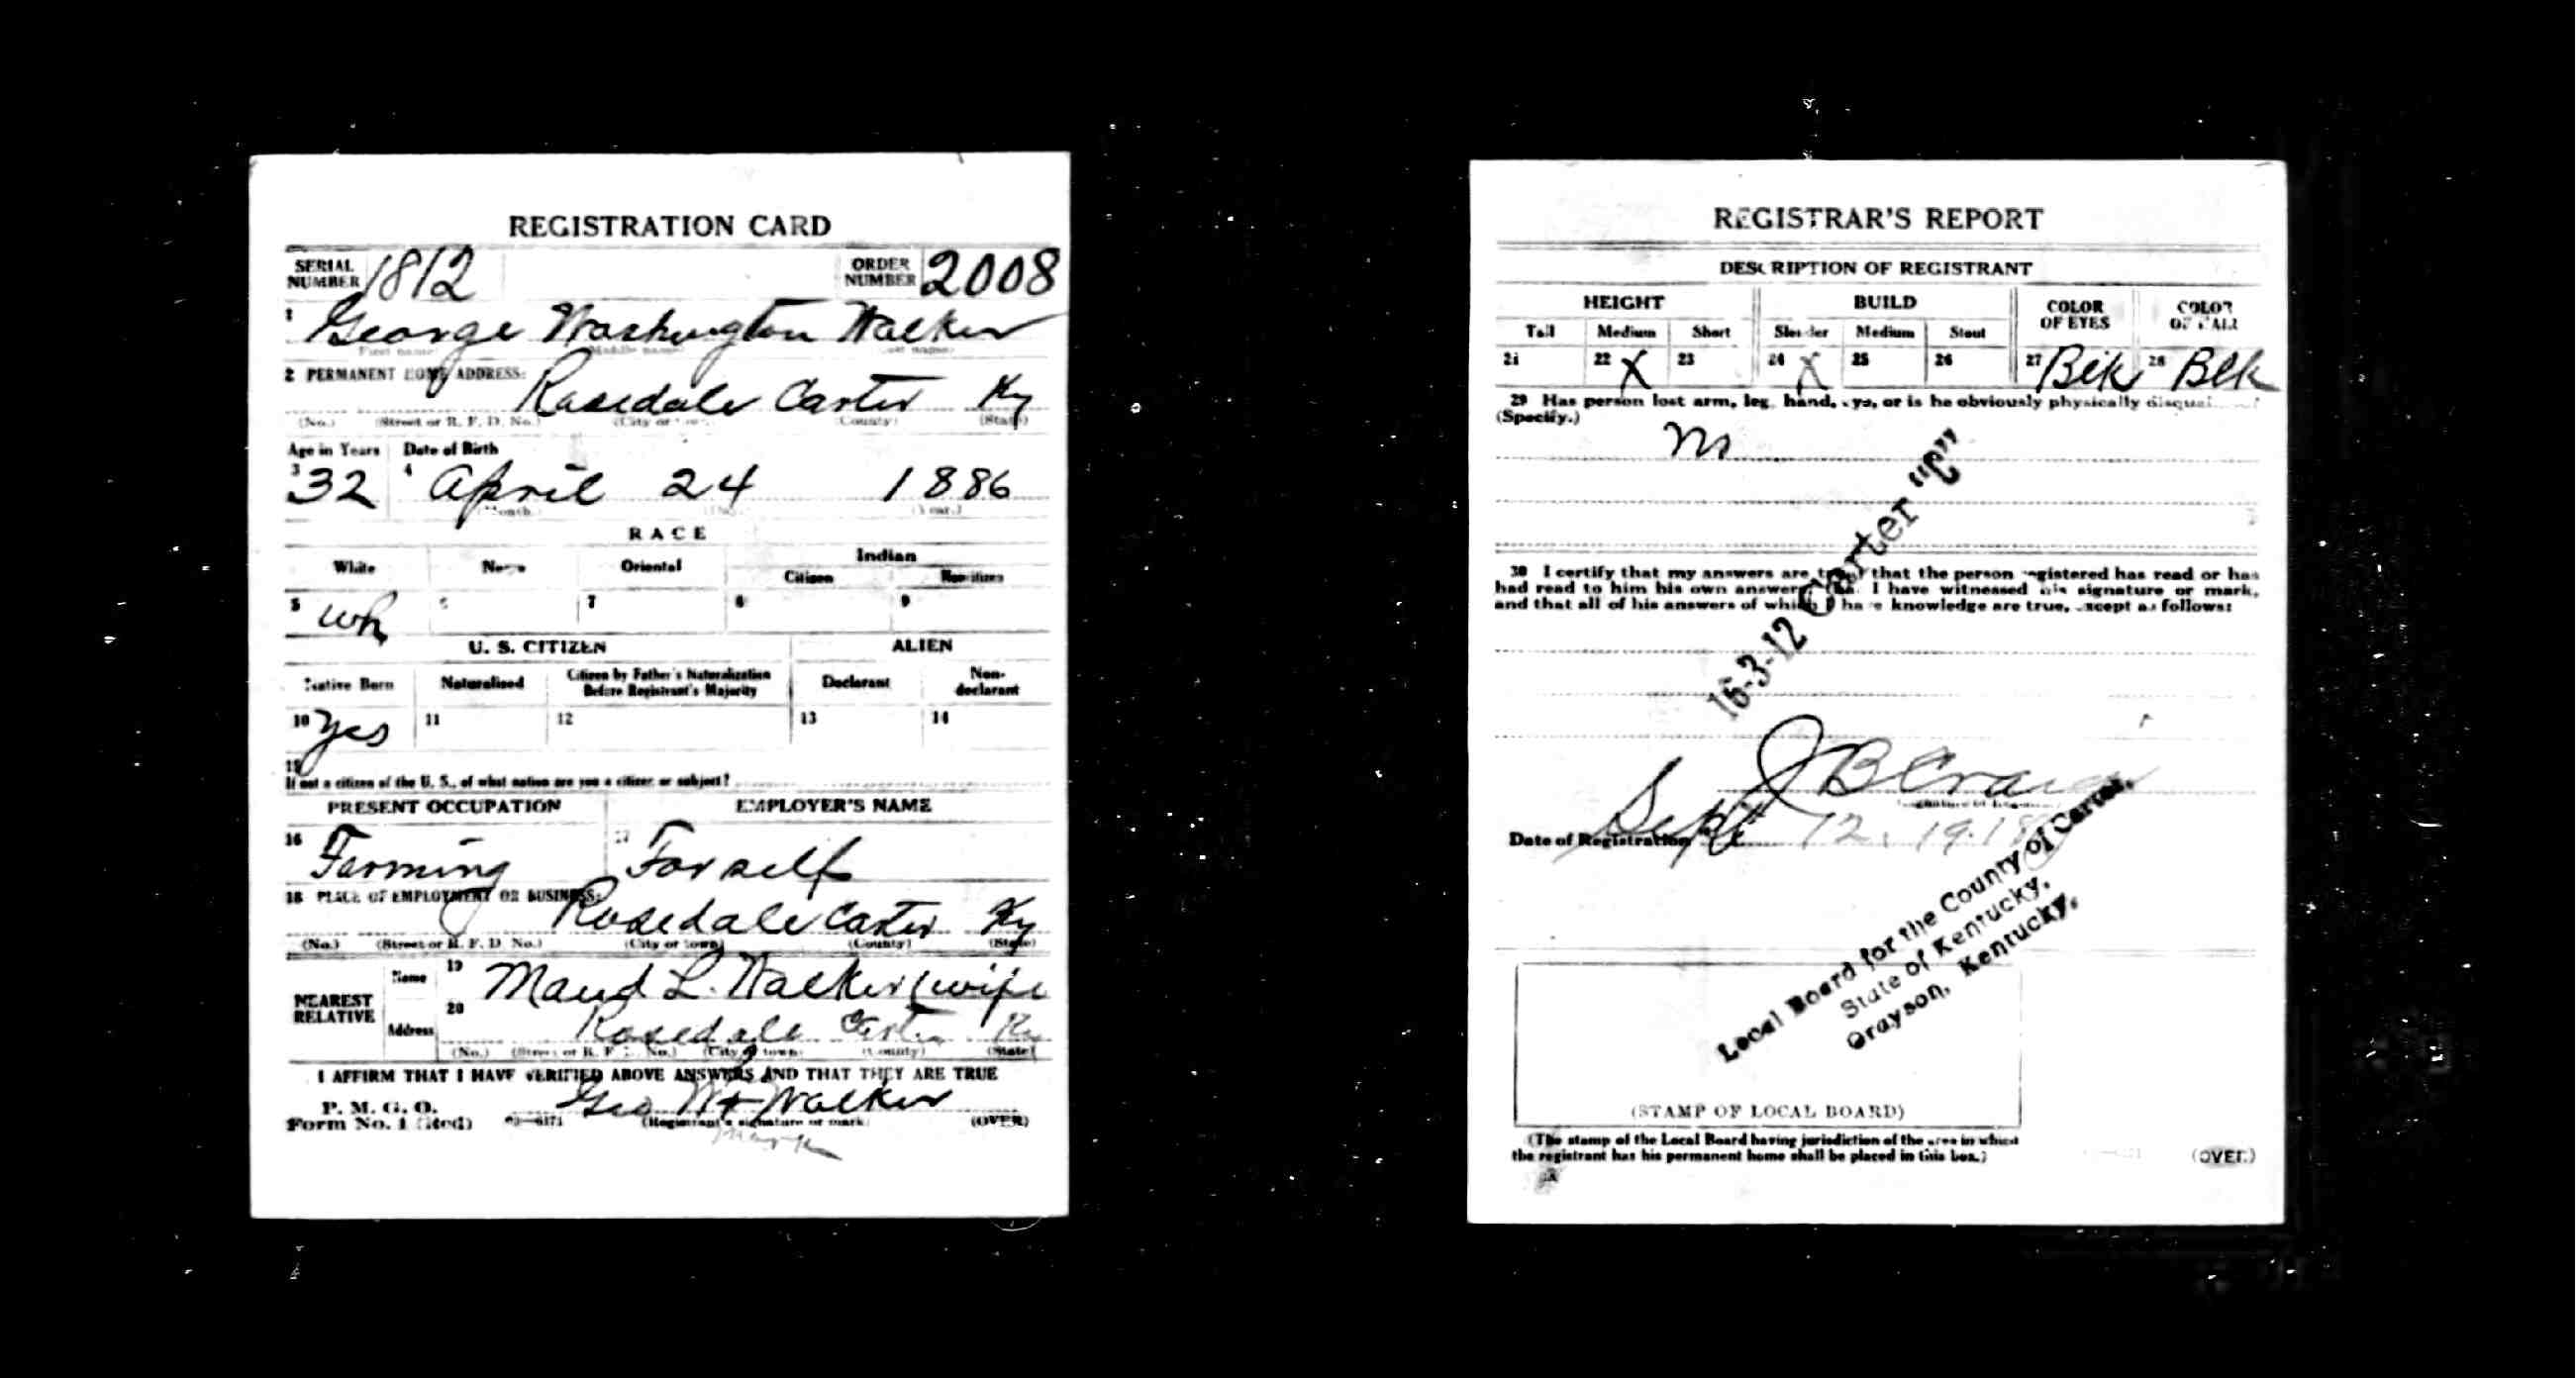 REGISTRATION CARD
SERIAL NUMBER 1812 ORDER NUMBER 2008
1 George Washington Walker
First name Middle name Last name
2 PERMANENT HOME ADDRESS: Rosedale Carter Ky
(No.) (Street or R. F. D. No.) (City or town) (County) (State)
Age in Years Date of Birth
3 32 4 April 24 1886
(Month.) (Day.) (Year.)
RACE
White Negro Oriental Indian
Citizen Noncitizen
5 wh 6 7 8 9
U. S. CITIZEN ALIEN
Native Born Naturalized Citizen by Father's Naturalization Before Registrant's Majority Declarant Non-declarant
10 yes 11 12 13 14
15
If not a citizen of the U. S., of what nation are you a citizen or subject?
PRESENT OCCUPATION EMPLOYER'S NAME
16 Farming 17 For self
18 PLACE OF EMPLOYMENT OR BUSINESS: Rosedale Carter Ky
(No.) (Street or R. F. D. No.) (City or town) (County) (State)
NEAREST RELATIVE Name 19 Maud L. Walker (wife
Address 20 Rosedale Carter Ky
(No.) (Street or R. F. D. No.) (City or town) (County) (State)
I AFFIRM THAT I HAVE VERIFIED ABOVE ANSWERS AND THAT THEY ARE TRUE
P. M. G. O.
Form No. 1 (Red) Geo W + Walker
(Registrant's signature or mark) (OVER)
mark
REGISTRAR'S REPORT
DESCRIPTION OF REGISTRANT
HEIGHT BUILD COLOR OF EYES COLOR OF HAIR
Tall Medium Short Slender Medium Stout
21 22 X 23 24 X 25 26 27 Blk 28 Blk
29 Has person lost arm, leg, hand, eye, or is he obviously physically disqualified?
(Specify.)
No
30 I certify that my answers are true; that the person registered has read or has
had read to him his own answers; that I have witnessed his signature or mark,
and that all of his answers of which I have knowledge are true, except as follows:
16-3-12 Carter "C"
J B Craig
Date of Registration Sept 12, 1918
Local Board for the County of Carter,
State of Kentucky,
Grayson, Kentucky,
(STAMP OF LOCAL BOARD)
(The stamp of the Local Board having jurisdiction of the area in which
the registrant has his permanent home shall be placed in this box.)
(OVER)